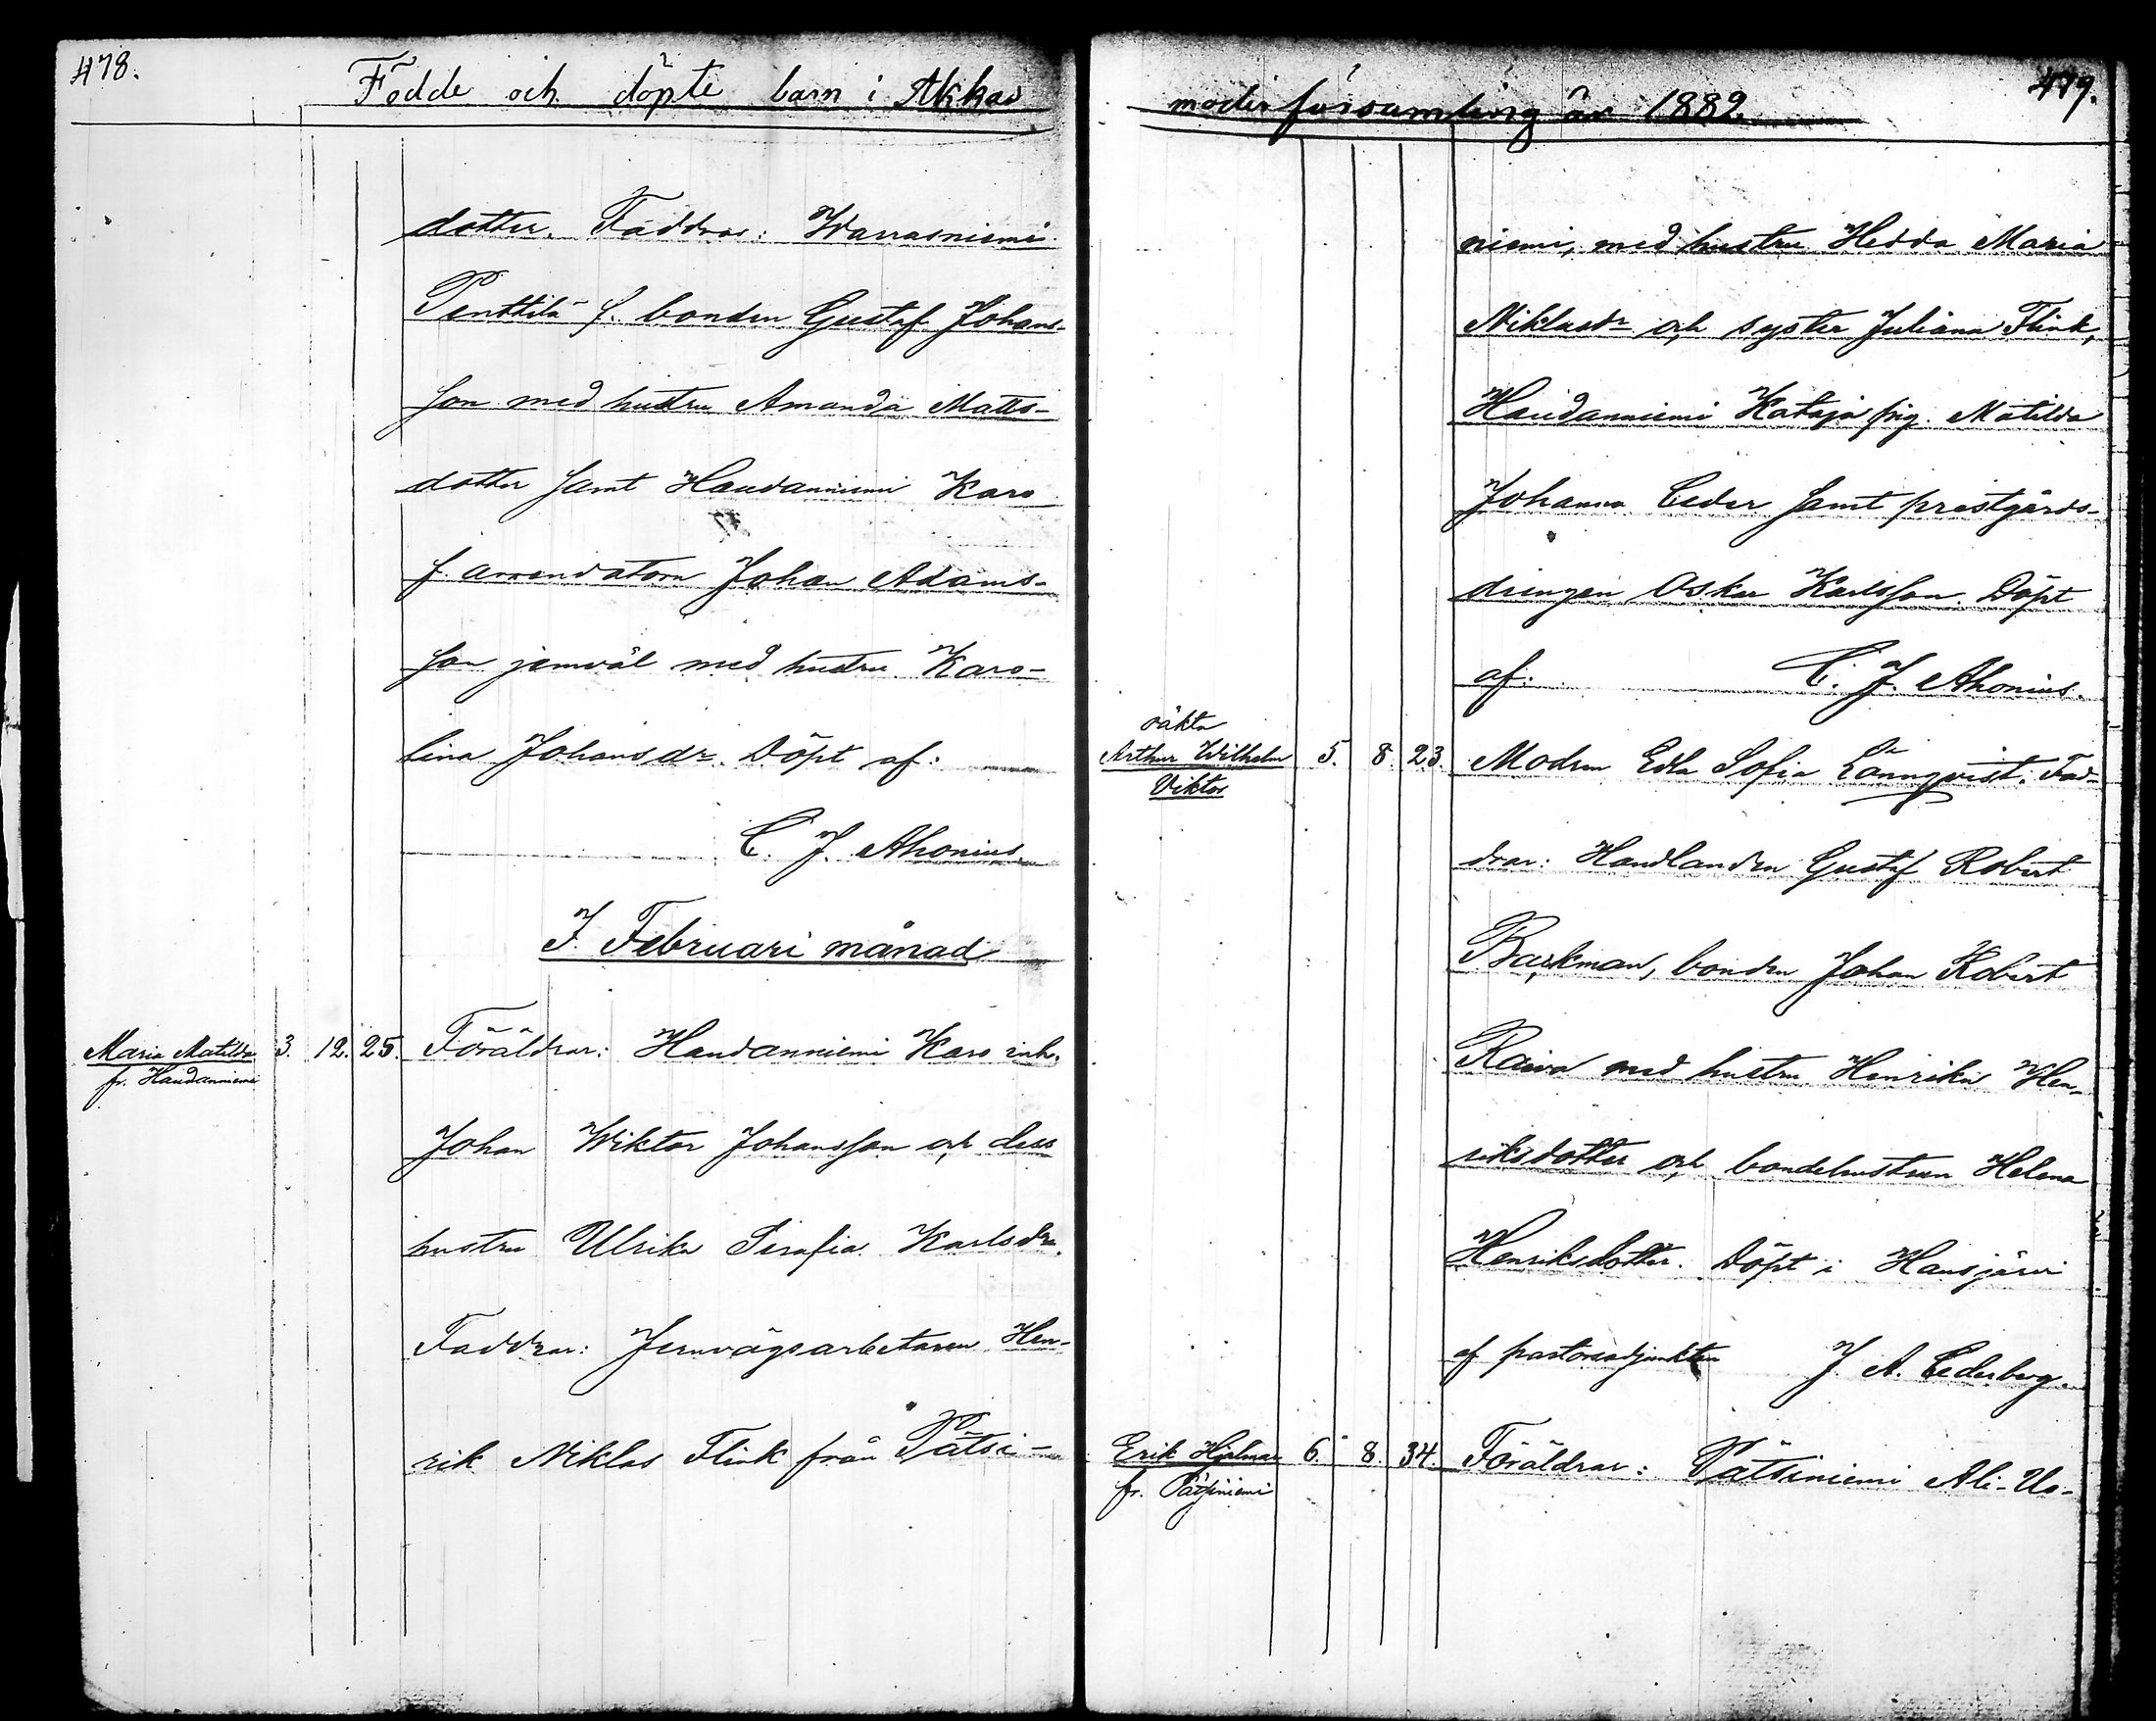 478.
Födde och döpte barn i Akkas
dotter. Faddrar: Warrasniemi
Penttilä f. bonden Gustaf Johans-
son med hustru Amanda Matts-
dotter samt Haudanniemi Karo
f. arrendatorn Johan Adams-
son jemväl med hustru Karo-
lina Johansdr. Döpt af:
C. J. Ahonius
I Februari månad
Maria Matilda 3. 12. 25. Föräldrar: Haudanniemi Karo inh.
fr. Haudanniemi
Johan Wiktor Johansson och dess
hustru Ulrika Serafia Karlsdr.
Faddrar: Jernvägsarbetaren Hen-
rik Niklas Flink från Pätsi-
479.
moderförsamling år 1882.
niemi, med hustru Hedda Maria
Niklasdr och syster Juliana Flink,
Haudanniemi Kataja pig. Matilda
Johanna Ceder samt prestgårds-
drengen Oskar Karlsson. Döpt
af: C. J. Ahonius.
oäkta
Arthur Wilhelm 5. 8. 23. Modren Edla Sofia Lönnqvist. Fad-
Viktor
drar: Handlanden Gustaf Robert
Backman, bonden Johan Robert
Raiva med hustru Henrika Hen-
riksdotter och bondehustrun Helena
Henriksdotter. Döpt i Hausjärvi
af pastorsadjunkten J. A. Cederberg.
Erik Hjalmar 6. 8. 34. Föräldrar: Pätsiniemi Ali-Us-
fr. Pätsiniemi